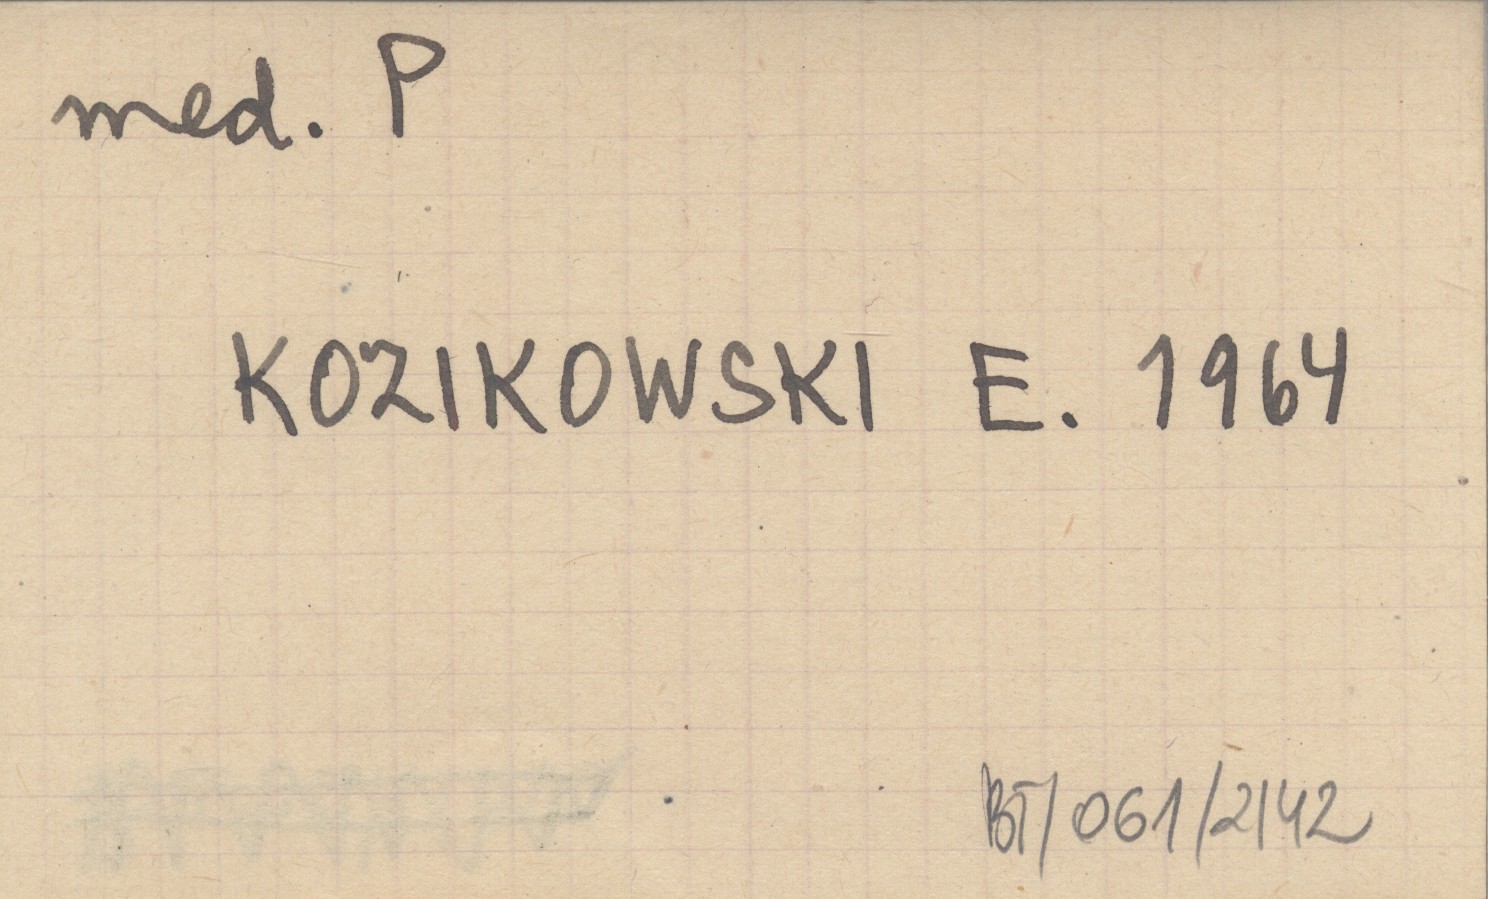 med. P
KOZIKOWSKI E. 1964
BT/061/2/42